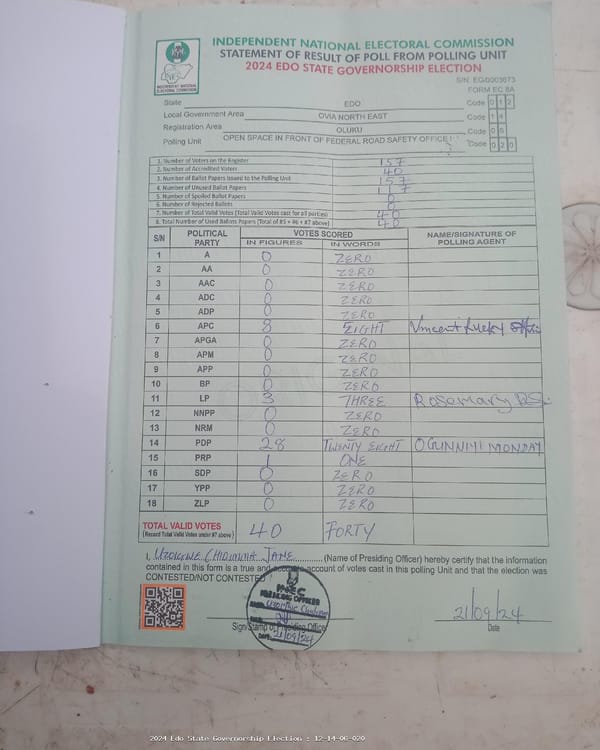 INDEPENDENT NATIONAL ELECTORAL COMMISSION
STATEMENT OF RESULT OF POLL FROM POLLING UNIT
2024 EDO STATE GOVERNORSHIP ELECTION
INEC
INDEPENDENT NATIONAL ELECTORAL COMMISSION
FORM EC 8A
State EDO Code 0 1 2
Local Government Area OVIA NORTH EAST Code 1 4
Registration Area OLUKU Code 0 6
Polling Unit OPEN SPACE IN FRONT OF FEDERAL ROAD SAFETY OFFICE Code 0 2 0
1. Number of Voters on the Register 157
2. Number of Accredited Voters 40
3. Number of Ballot Papers Issued to the Polling Unit 157
4. Number of Unused Ballot Papers 117
5. Number of Spoiled Ballot Papers 0
6. Number of Rejected Ballots 0
7. Number of Total Valid Votes (Total Valid Votes cast for all parties) 40
8. Total Number of Used Ballots Papers (Total of #5 + #6 + #7 above) 40
S/N POLITICAL PARTY VOTES SCORED NAME/SIGNATURE OF POLLING AGENT
IN FIGURES IN WORDS
1 A 0 ZERO
2 AA 0 ZERO
3 AAC 0 ZERO
4 ADC 0 ZERO
5 ADP 0 ZERO
6 APC 8 EIGHT Vincent Lucky
7 APGA 0 ZERO
8 APM 0 ZERO
9 APP 0 ZERO
10 BP 0 ZERO
11 LP 3 THREE Rosemary
12 NNPP 0 ZERO
13 NRM 0 ZERO
14 PDP 28 TWENTY EIGHT OGUNNIYI MONDAY
15 PRP 1 ONE
16 SDP 0 ZERO
17 YPP 0 ZERO
18 ZLP 0 ZERO
TOTAL VALID VOTES 40 FORTY
(Record Total Valid Votes under #7 above)
I, CHIDINMA JANE (Name of Presiding Officer) hereby certify that the information
contained in this form is a true and account of votes cast in this polling Unit and that the election was
CONTESTED/NOT CONTESTED
INEC
PRESIDING OFFICER
DATE 21/09/24
Sign/Stamp of Presiding Officer
21/09/24
Date
2024 Edo State Governorship Election : 12-14-06-020